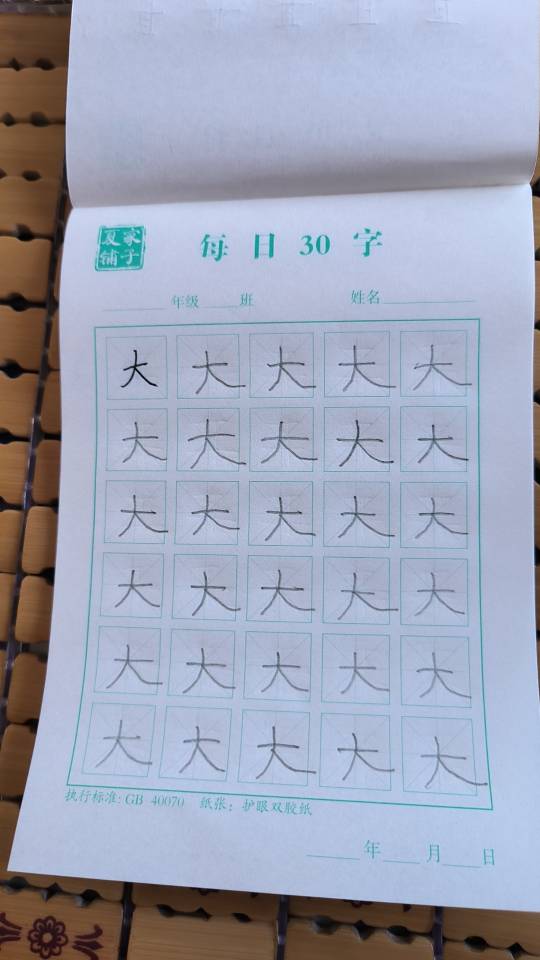 夏家
铺子
每日30字
年级 班 姓名
大 大 大 大 大
大 大 大 大 大
大 大 大 大 大
大 大 大 大 大
大 大 大 大 大
大 大 大 大 大
执行标准: GB 40070 纸张: 护眼双胶纸
年 月 日